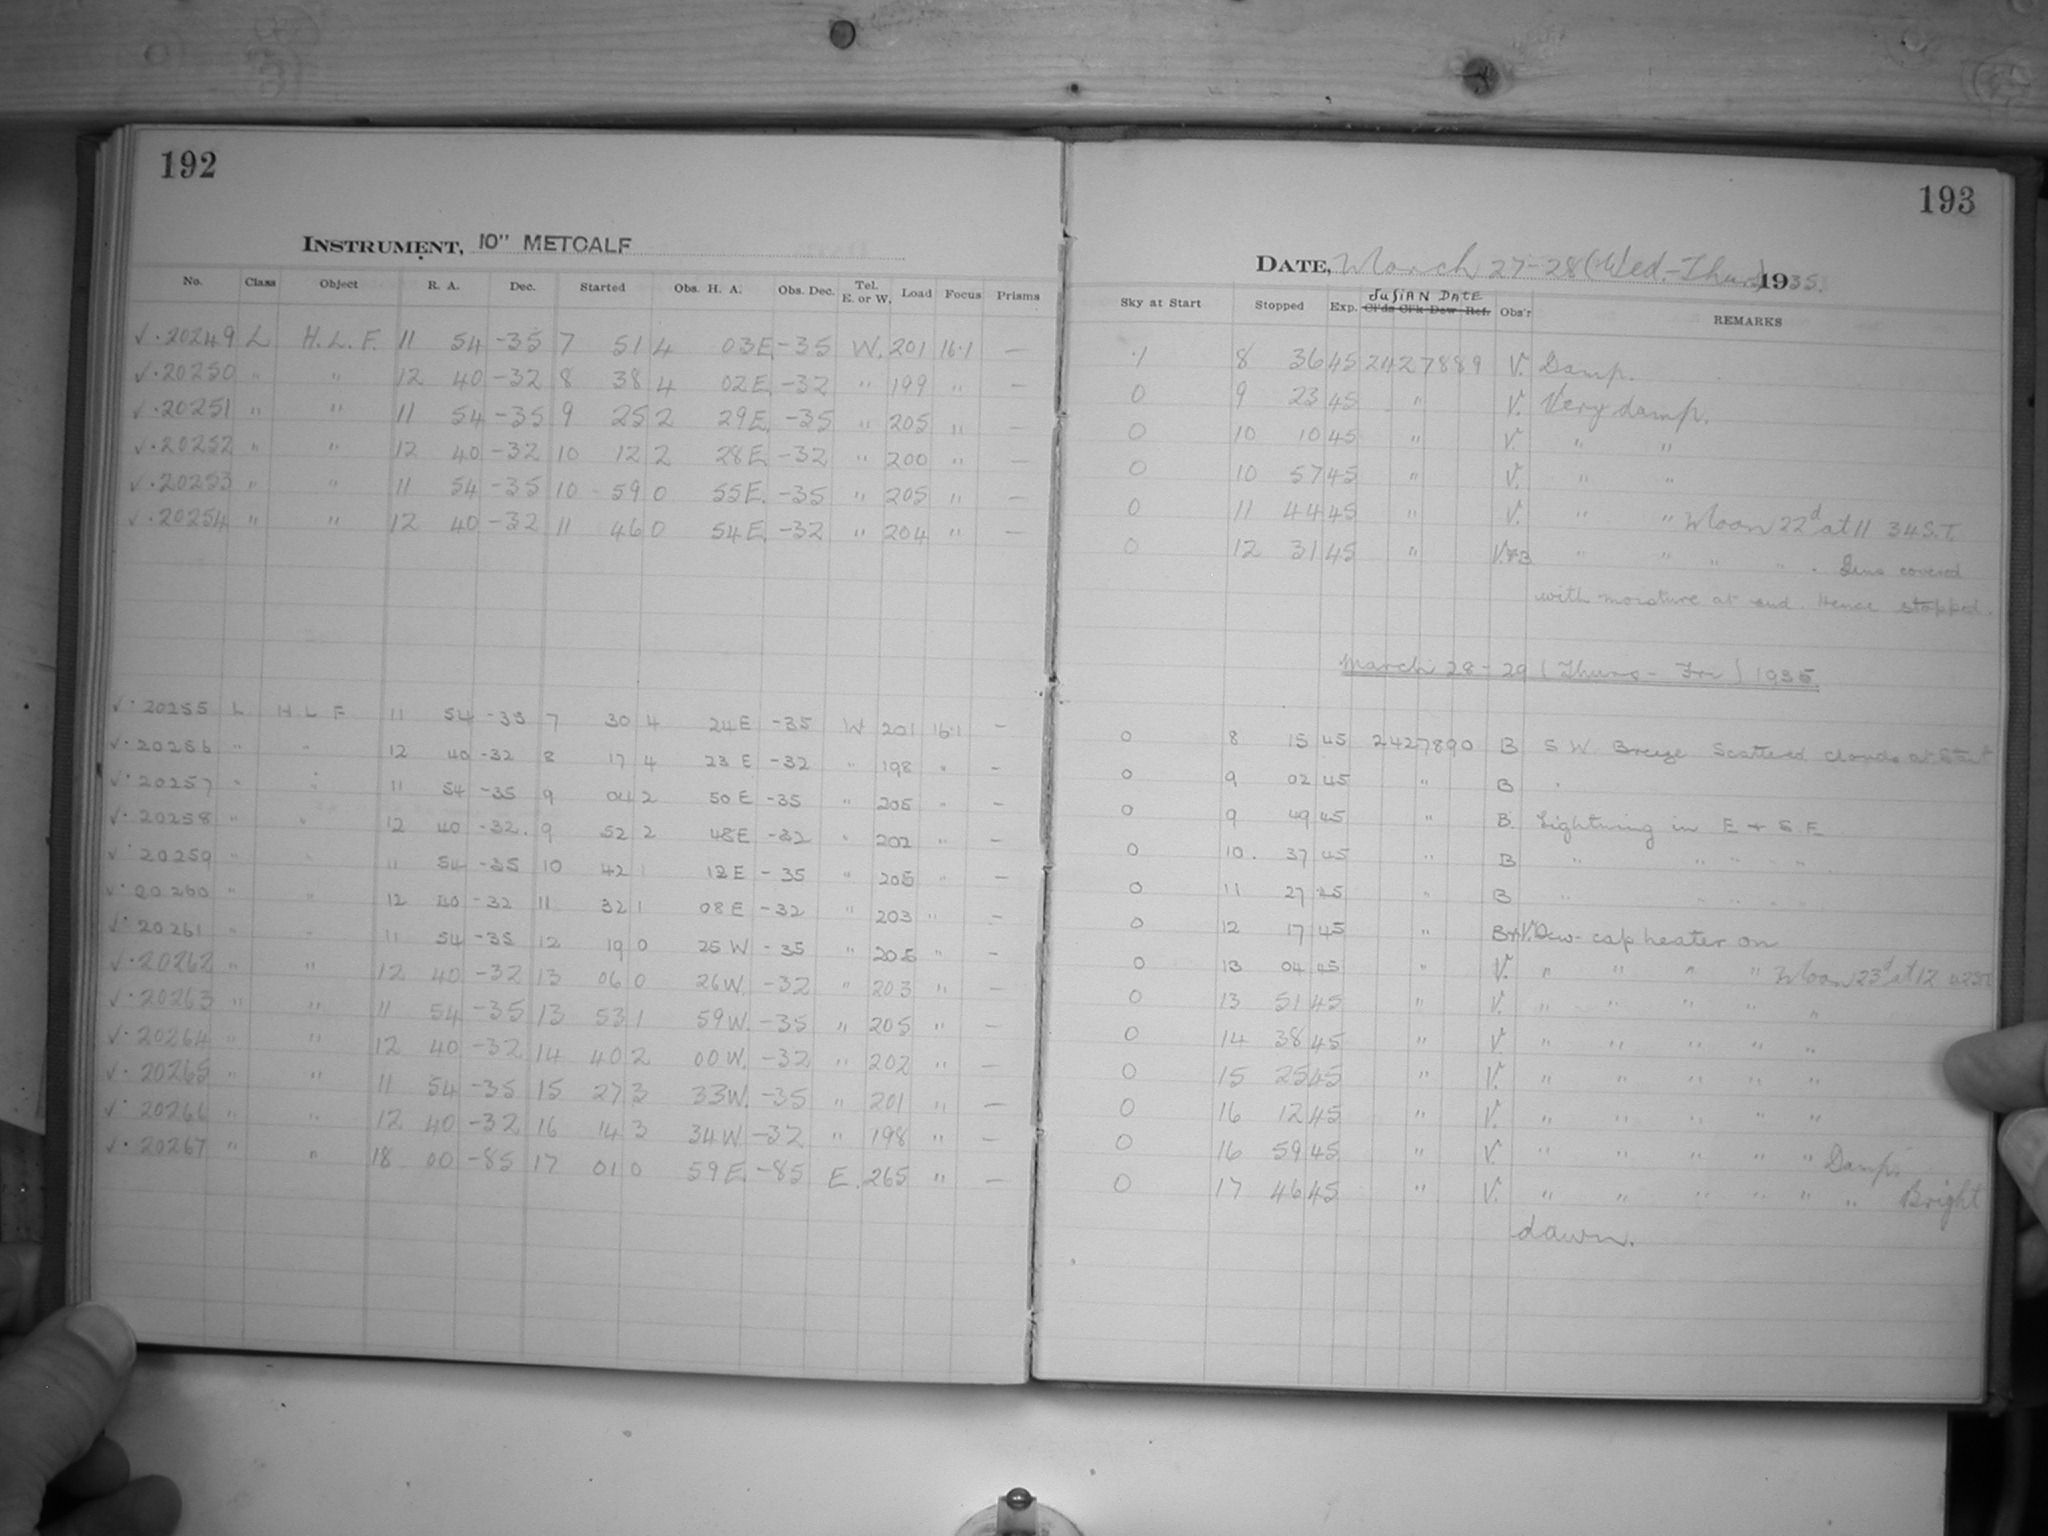 192
INSTRUMENT, 10" METCALF
No. Class Object R. A. Dec. Started Obs. H. A. Obs. Dec. Tel. E. or W. Load Focus Prisms
√ · 20249 L H. L. F. 11 54 -35 7 51 4 03E -35 W. 201 16·1 —
√ · 20250 " " 12 40 -32 8 38 4 02E -32 " 199 " —
√ · 20251 " " 11 54 -35 9 25 2 29E -35 " 205 " —
√ · 20252 " " 12 40 -32 10 12 2 28E -32 " 200 " —
√ · 20253 " " 11 54 -35 10 59 0 55E. -35 " 205 " —
√ · 20254 " " 12 40 -32 11 46 0 54E. -32 " 204 " —
√ · 20255 L H L F 11 54 -35 7 30 4 24E -35 W 201 16·1 —
√ · 20256 " " 12 40 -32 8 17 4 23 E -32 " 198 " —
√ · 20257 " " 11 54 -35 9 04 2 50 E -35 " 205 " —
√ · 20258 " " 12 40 -32. 9 52 2 48E -32 " 202 " —
√ · 20259 " " 11 54 -35 10 42 1 12E -35 " 205 " —
√ · 20260 " " 12 40 -32 11 32 1 08E -32 " 203 " —
√ · 20261 " " 11 54 -35 12 19 0 25 W -35 " 205 " —
√ · 20262 " " 12 40 -32 13 06 0 26W. -32 " 203 " —
√ · 20263 " " 11 54 -35 13 53 1 59W. -35 " 205 " —
√ · 20264 " " 12 40 -32 14 40 2 00W. -32 " 202 " —
√ · 20265 " " 11 54 -35 15 27 3 33W. -35 " 201 " —
√ · 20266 " " 12 40 -32 16 14 3 34W -32 " 198 " —
√ · 20267 " " 18 00 -85 17 01 0 59E. -85 E. 265 " —
193
DATE, March 27-28 (Wed.-Thur.) 1935.
JUSIAN DATE
Sky at Start Stopped Exp. Cl'ds Cl'k Dew Ref. Obs'r REMARKS
·1 8 36 45 2427889 V. Damp.
0 9 23 45 " V. Very damp.
0 10 10 45 " V. " "
0 10 57 45 " V. " "
0 11 44 45 " V. " " Moon 22d at 11 34 S.T.
0 12 31 45 " V.+B " " " " . Lens covered
with moisture at end. Hence stopped.
March 28-29 (Thurs - Fri) 1935
0 8 15 45 2427890 B S W Breeze Scattered clouds at Start
0 9 02 45 " B
0 9 49 45 " B. Lightning in E + S. E
0 10. 37 45 " B " " " " "
0 11 27 45 " B " " " " "
0 12 17 45 " B+V. Dew-cap heater on
0 13 04 45 " V. " " " " Moon 23d at 12
0 13 51 45 " V. " " " " "
0 14 38 45 " V. " " " " "
0 15 25 45 " V. " " " " "
0 16 12 45 " V. " " " " "
0 16 59 45 " V. " " " " " Damp.
0 17 46 45 " V. " " " " " " Bright
dawn.